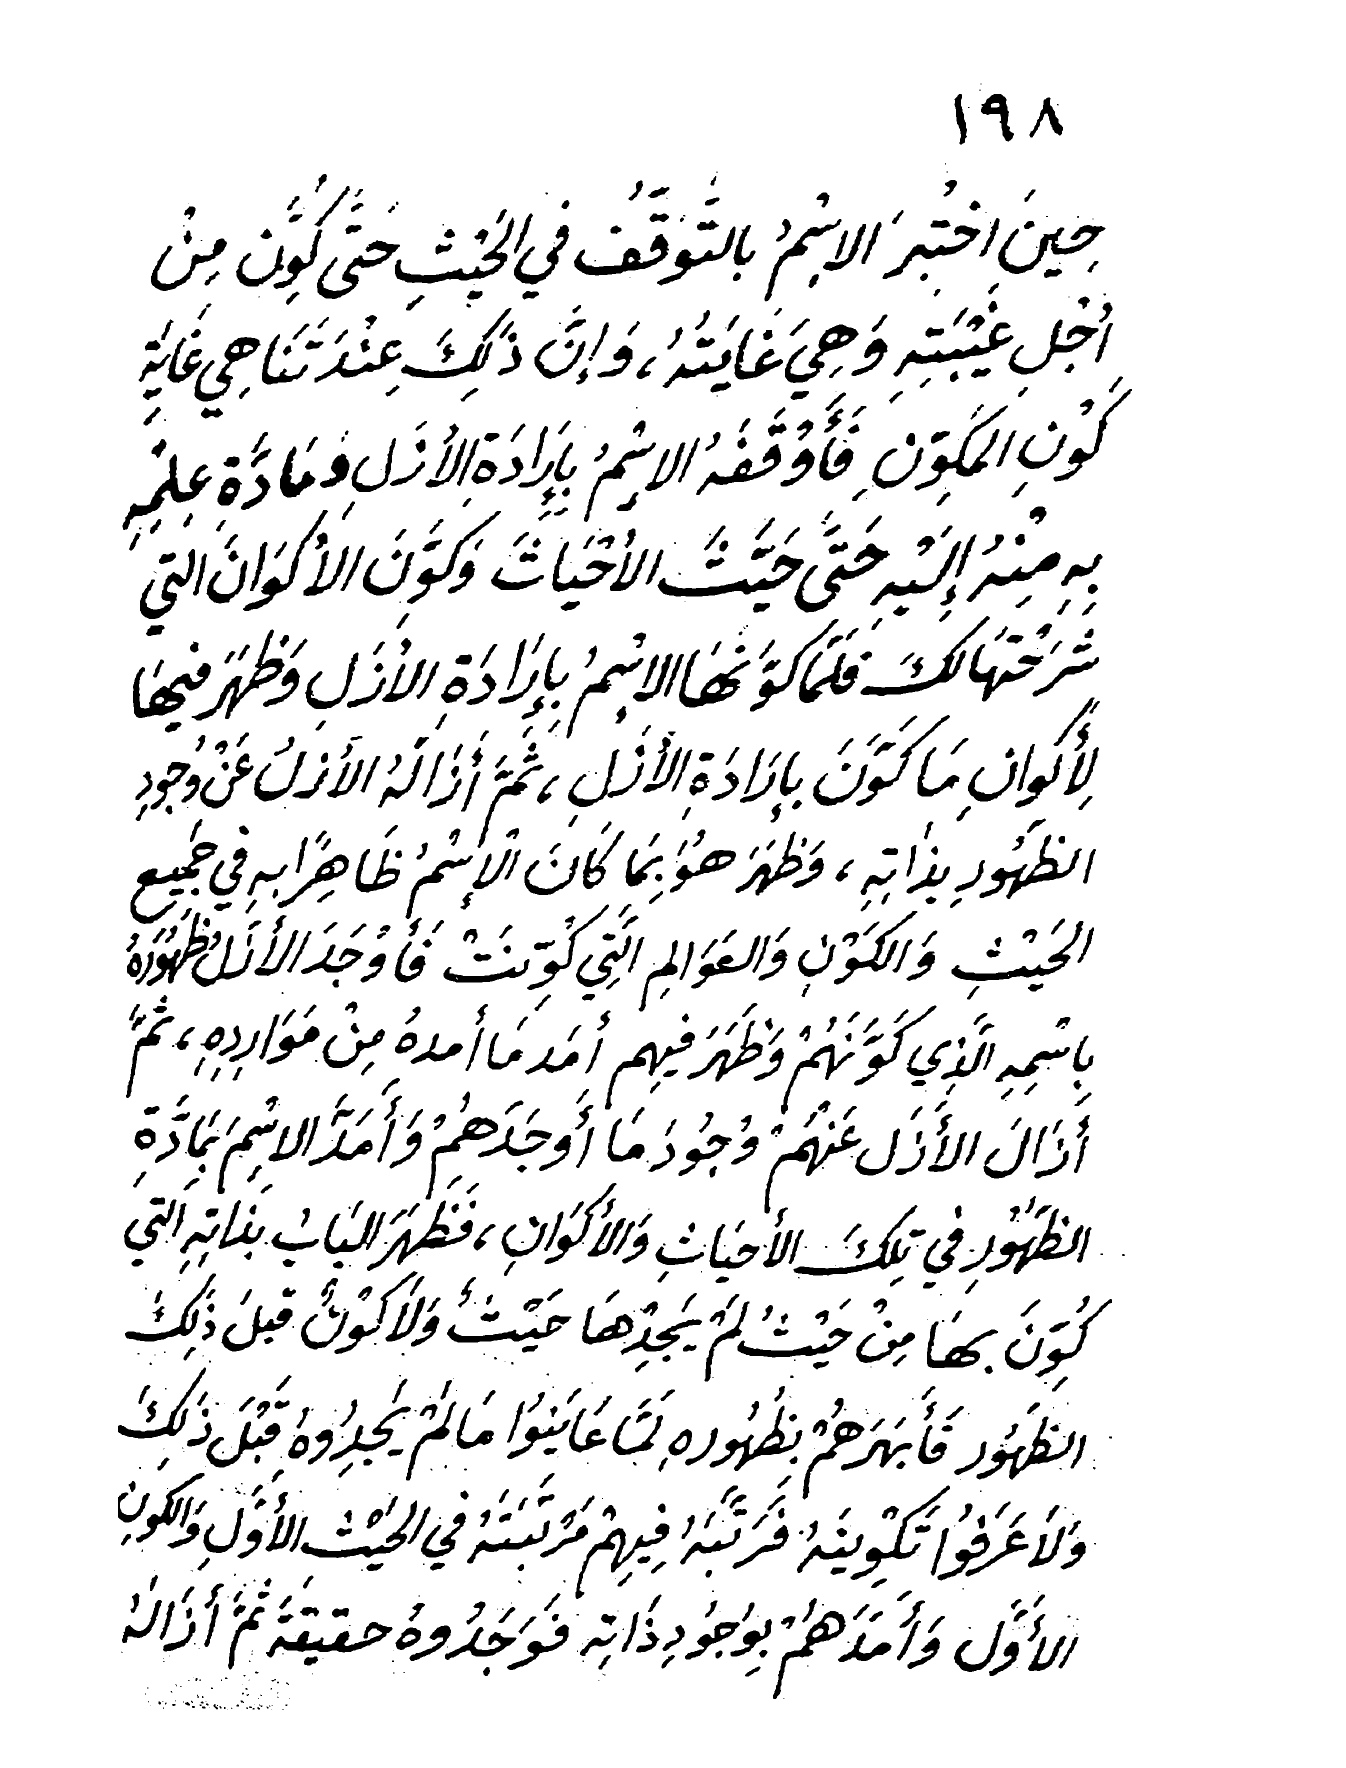 ١٩٨
حِينَ اخْتُبِرَ الاِسْمُ بالتَّوَقُّفِ في الحَيْثِ حَتَّى كُوِّنَ مِنْ
أَجْلِ غَيْبَتِهِ وَهِيَ غَايَتُهُ، وَإِنَّ ذَلِكَ عِنْدَ تَنَاهِي غَايَةِ
كَوْنِ المكَوِّنِ فَأَوْقَفَهُ الاِسْمُ بِإِرَادَةِ الأَزَلِ وَمَادَّةِ عِلْمِهِ
بِهِ مِنْهُ إِلَيْهِ حَتَّى حَيَّثَ الأَحْيَاثَ وَكَوَّنَ الأَكوَانَ التي
شَرَحْتُهَا لكَ فَلَمَّا كَوَّنَهَا الاِسْمُ بِإِرَادَةِ الأَزَلِ وَظَهَرَ فيهَا
لِأَكْوَانِ مَا كَوَّنَ بِإِرَادَةِ الأَزَلِ، ثُمَّ أَزَالَهُ الأَزلُ عَنْ وُجودِ
الظهُورِ بِذَاتِهِ، وَظَهَرَ هُوَ بِمَا كَانَ الْإِسْمُ ظَاهِرًا بِهِ في جَمِيعِ
الحَيْثِ وَالكَوْنِ وَالعَوَالِمِ الَّتِي كُوِّنَتْ فَأَوْجَدَ الأَزَلُ ظهُورَهُ
بِاسْمِهِ الَّذِي كَوَّنَهُمْ وَظَهَرَ فيهِم أمَد مَا أمدهُ مِنْ مَوَارِدِهِ، ثُمَّ
أَزَالَ الأَزَل عَنْهُمْ وُجُودَ مَا أَوجَدَهُمْ وَأَمَدَّ الاِسْمَ بمَادَّةِ
الظهُورِ في تِلكَ الأحيَاثِ وَالأَكْوَانِ، فَظَهَرَ البَابُ بِذَاتِهِ التي
كُوِّنَ بهَا مِنْ حَيْثُ لَمْ يَجِدْهَا حَيْثٌ وَلاَ كَوْنٌ قبلَ ذَلِكَ
الظهُور فَأَبهَرَهُمْ بِظُهُورهِ لمَّا عَايَنوُا مَا لَمْ يَجِدُوهُ قَبْلَ ذَلِكَ
وَلاَ عَرَفُوا تَكْوِينَهُ فَرَتَّبَهُ فِيهِمْ مَرْتَبَتَهُ فِي الحَيْثِ الأَوَّلِ وَالكَونِ
الأَوَّل وَأَمَدَهُمْ بِوُجُودِ ذَاتِهِ فَوَجَدُوهُ حقيقةً ثُمَّ أزَالهُ